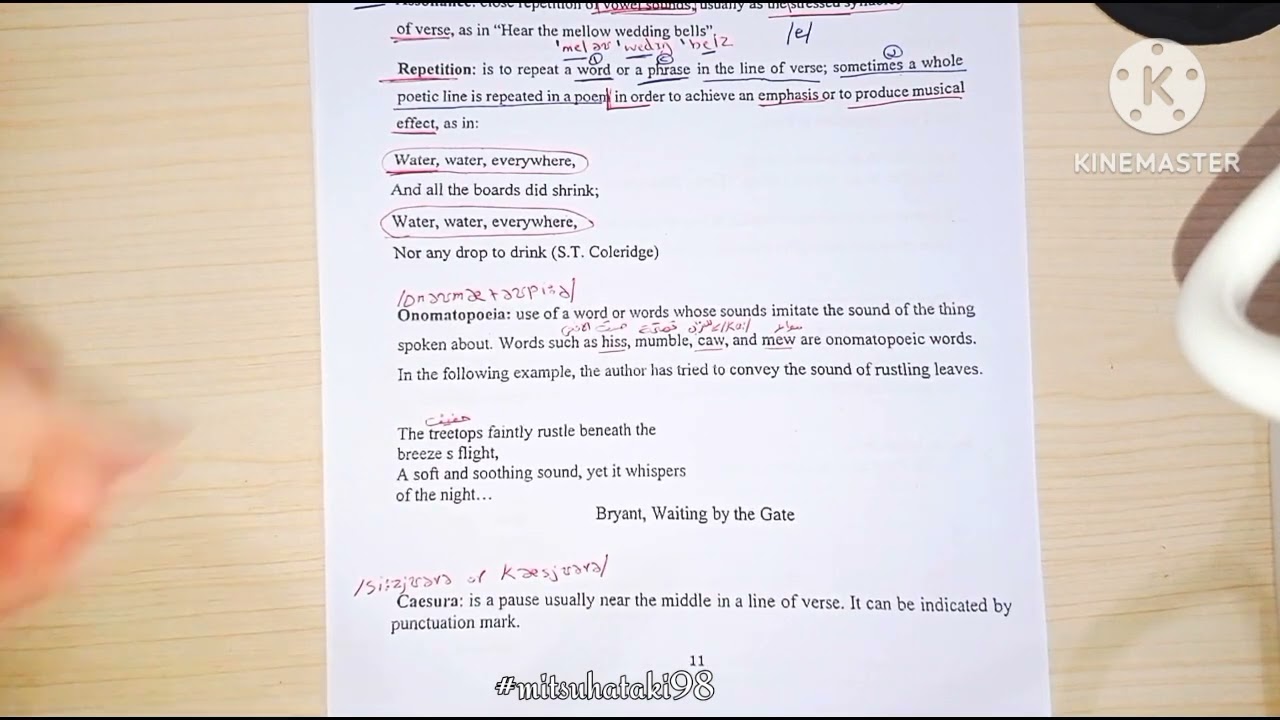 Assonance: close repetition of vowel sounds, usually as the stressed
of verse, as in “Hear the mellow wedding bells”. /e/
Repetition: is to repeat a word or a phrase in the line of verse; sometimes a whole
poetic line is repeated in a poem in order to achieve an emphasis or to produce musical
effect, as in:
Water, water, everywhere,
And all the boards did shrink;
Water, water, everywhere,
Nor any drop to drink (S.T. Coleridge)
Onomatopoeia: use of a word or words whose sounds imitate the sound of the thing
spoken about. Words such as hiss, mumble, caw, and mew are onomatopoeic words.
In the following example, the author has tried to convey the sound of rustling leaves.
حفيف
The treetops faintly rustle beneath the
breeze s flight,
A soft and soothing sound, yet it whispers
of the night…
Bryant, Waiting by the Gate
/si:zjʊərə or Kæsjʊərə/
Caesura: is a pause usually near the middle in a line of verse. It can be indicated by
punctuation mark.
11
#mitsuhataki98
K
KINEMASTER